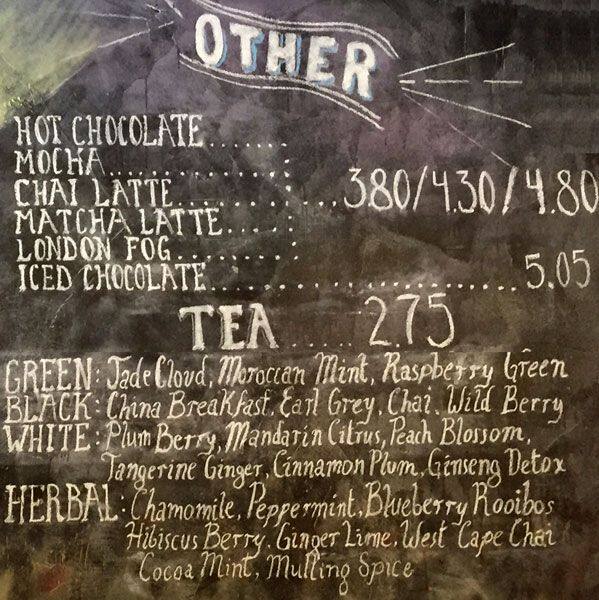 OTHER
HOT CHOCOLATE.......
MOCHA.............:
CHAI LATTE..............380/4.30/4.80
MATCHA LATTE....:
LONDON FOG........:
ICED CHOCOLATE......................5.05
TEA......2.75
GREEN: Jade Cloud, Moroccan Mint, Raspberry Green
BLACK: China Breakfast, Earl Grey, Chai, Wild Berry
WHITE: Plum Berry, Mandarin Citrus, Peach Blossom,
Tangerine Ginger, Cinnamon Plum, Ginseng Detox
HERBAL: Chamomile, Peppermint, Blueberry Rooibos
Hibiscus Berry, Ginger Lime, West Cape Chai
Cocoa Mint, Mulling Spice